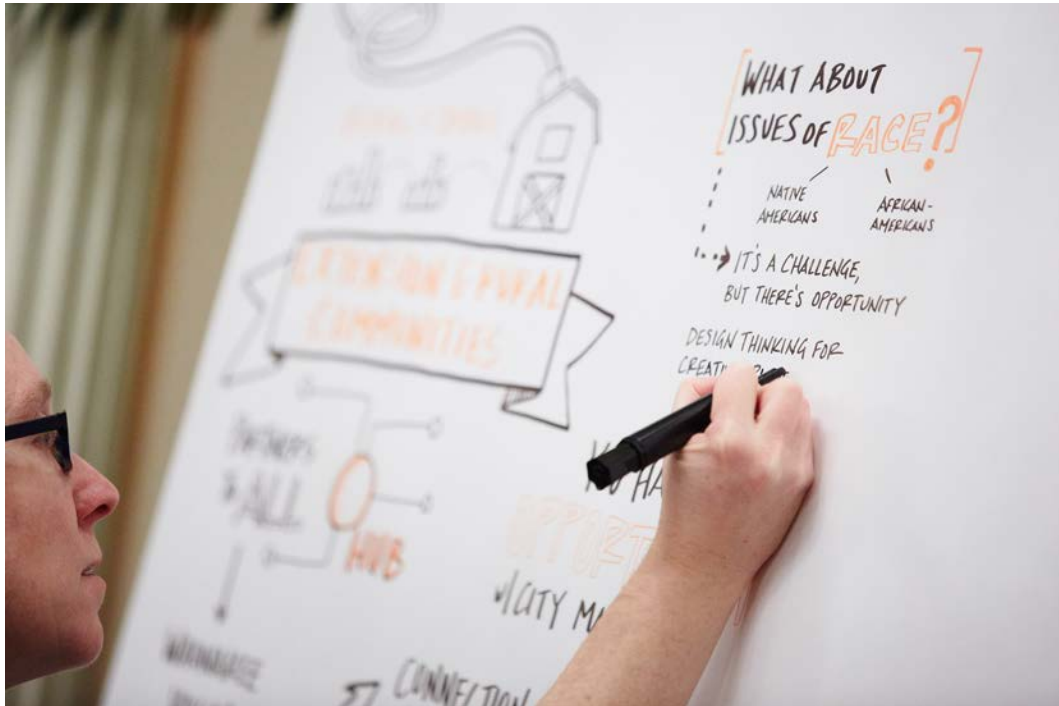 WHAT ABOUT
ISSUES OF RACE?
NATIVE
AMERICANS
AFRICAN-
AMERICANS
IT'S A CHALLENGE,
BUT THERE'S OPPORTUNITY
DESIGN THINKING FOR
& RURAL
COMMUNITIES
PARTNERS
ALL
HUB
YOU HA
OPPORT
W/CITY MA
CONNECTION